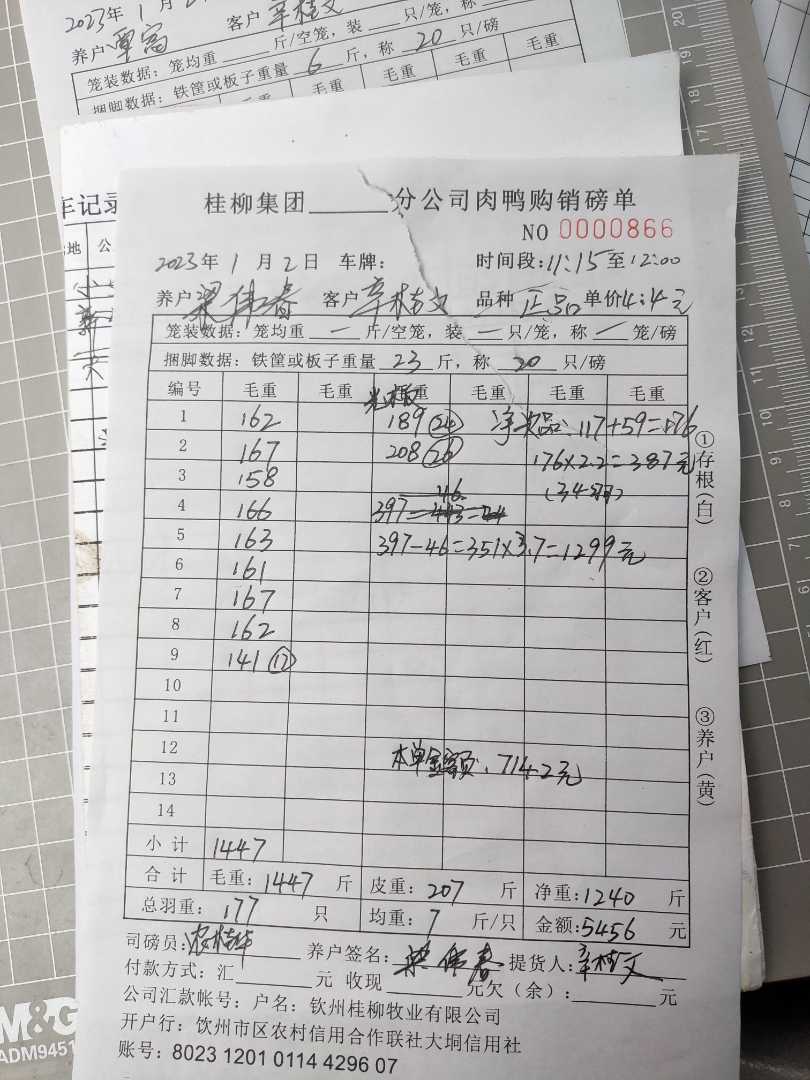 2023年 1 月 2
养户 覃富 客户 辛桂文
笼装数据：笼均重 斤/空笼，装 只/笼，称
捆脚数据：铁筐或板子重量 6 斤，称 20 只/磅
毛重 毛重 毛重 毛重
车记录
地 公
桂柳集团 分公司肉鸭购销磅单
NO 0000866
2023年 1 月 2 日 车牌： 时间段：11:15 至 12:00
养户 梁伟春 客户 辛桂文 品种 正品 单价 4.4 元
笼装数据：笼均重 一 斤/空笼，装 一 只/笼，称 一 笼/磅
捆脚数据：铁筐或板子重量 23 斤，称 20 只/磅
编号 毛重 毛重 光板 毛重 毛重 毛重 毛重
1 162 189 (24) 净次品：117+59=176
2 167 208 (26) 176×2.2=387元
3 158 46 (34羽)
4 166 397-443=44
5 163 397-46=351×3.7=1299元
6 161
7 167
8 162
9 141 (17)
10
11
12 本单金额：7142元
13
14
小计 1447
合计 毛重：1447 斤 皮重：207 斤 净重：1240 斤
总羽重：177 只 均重：7 斤/只 金额：5456 元
司磅员： 养户签名：梁伟春 提货人：辛桂文
付款方式：汇 元 收现 元欠（余）： 元
公司汇款帐号：户名：钦州桂柳牧业有限公司
开户行：饮州市区农村信用合作联社大垌信用社
账号：8023 1201 0114 4296 07
①存根（白）
②客户（红）
③养户（黄）
M&G
ADM9451
20
19
18
17
13
12
11
10
9
8
7
6
5